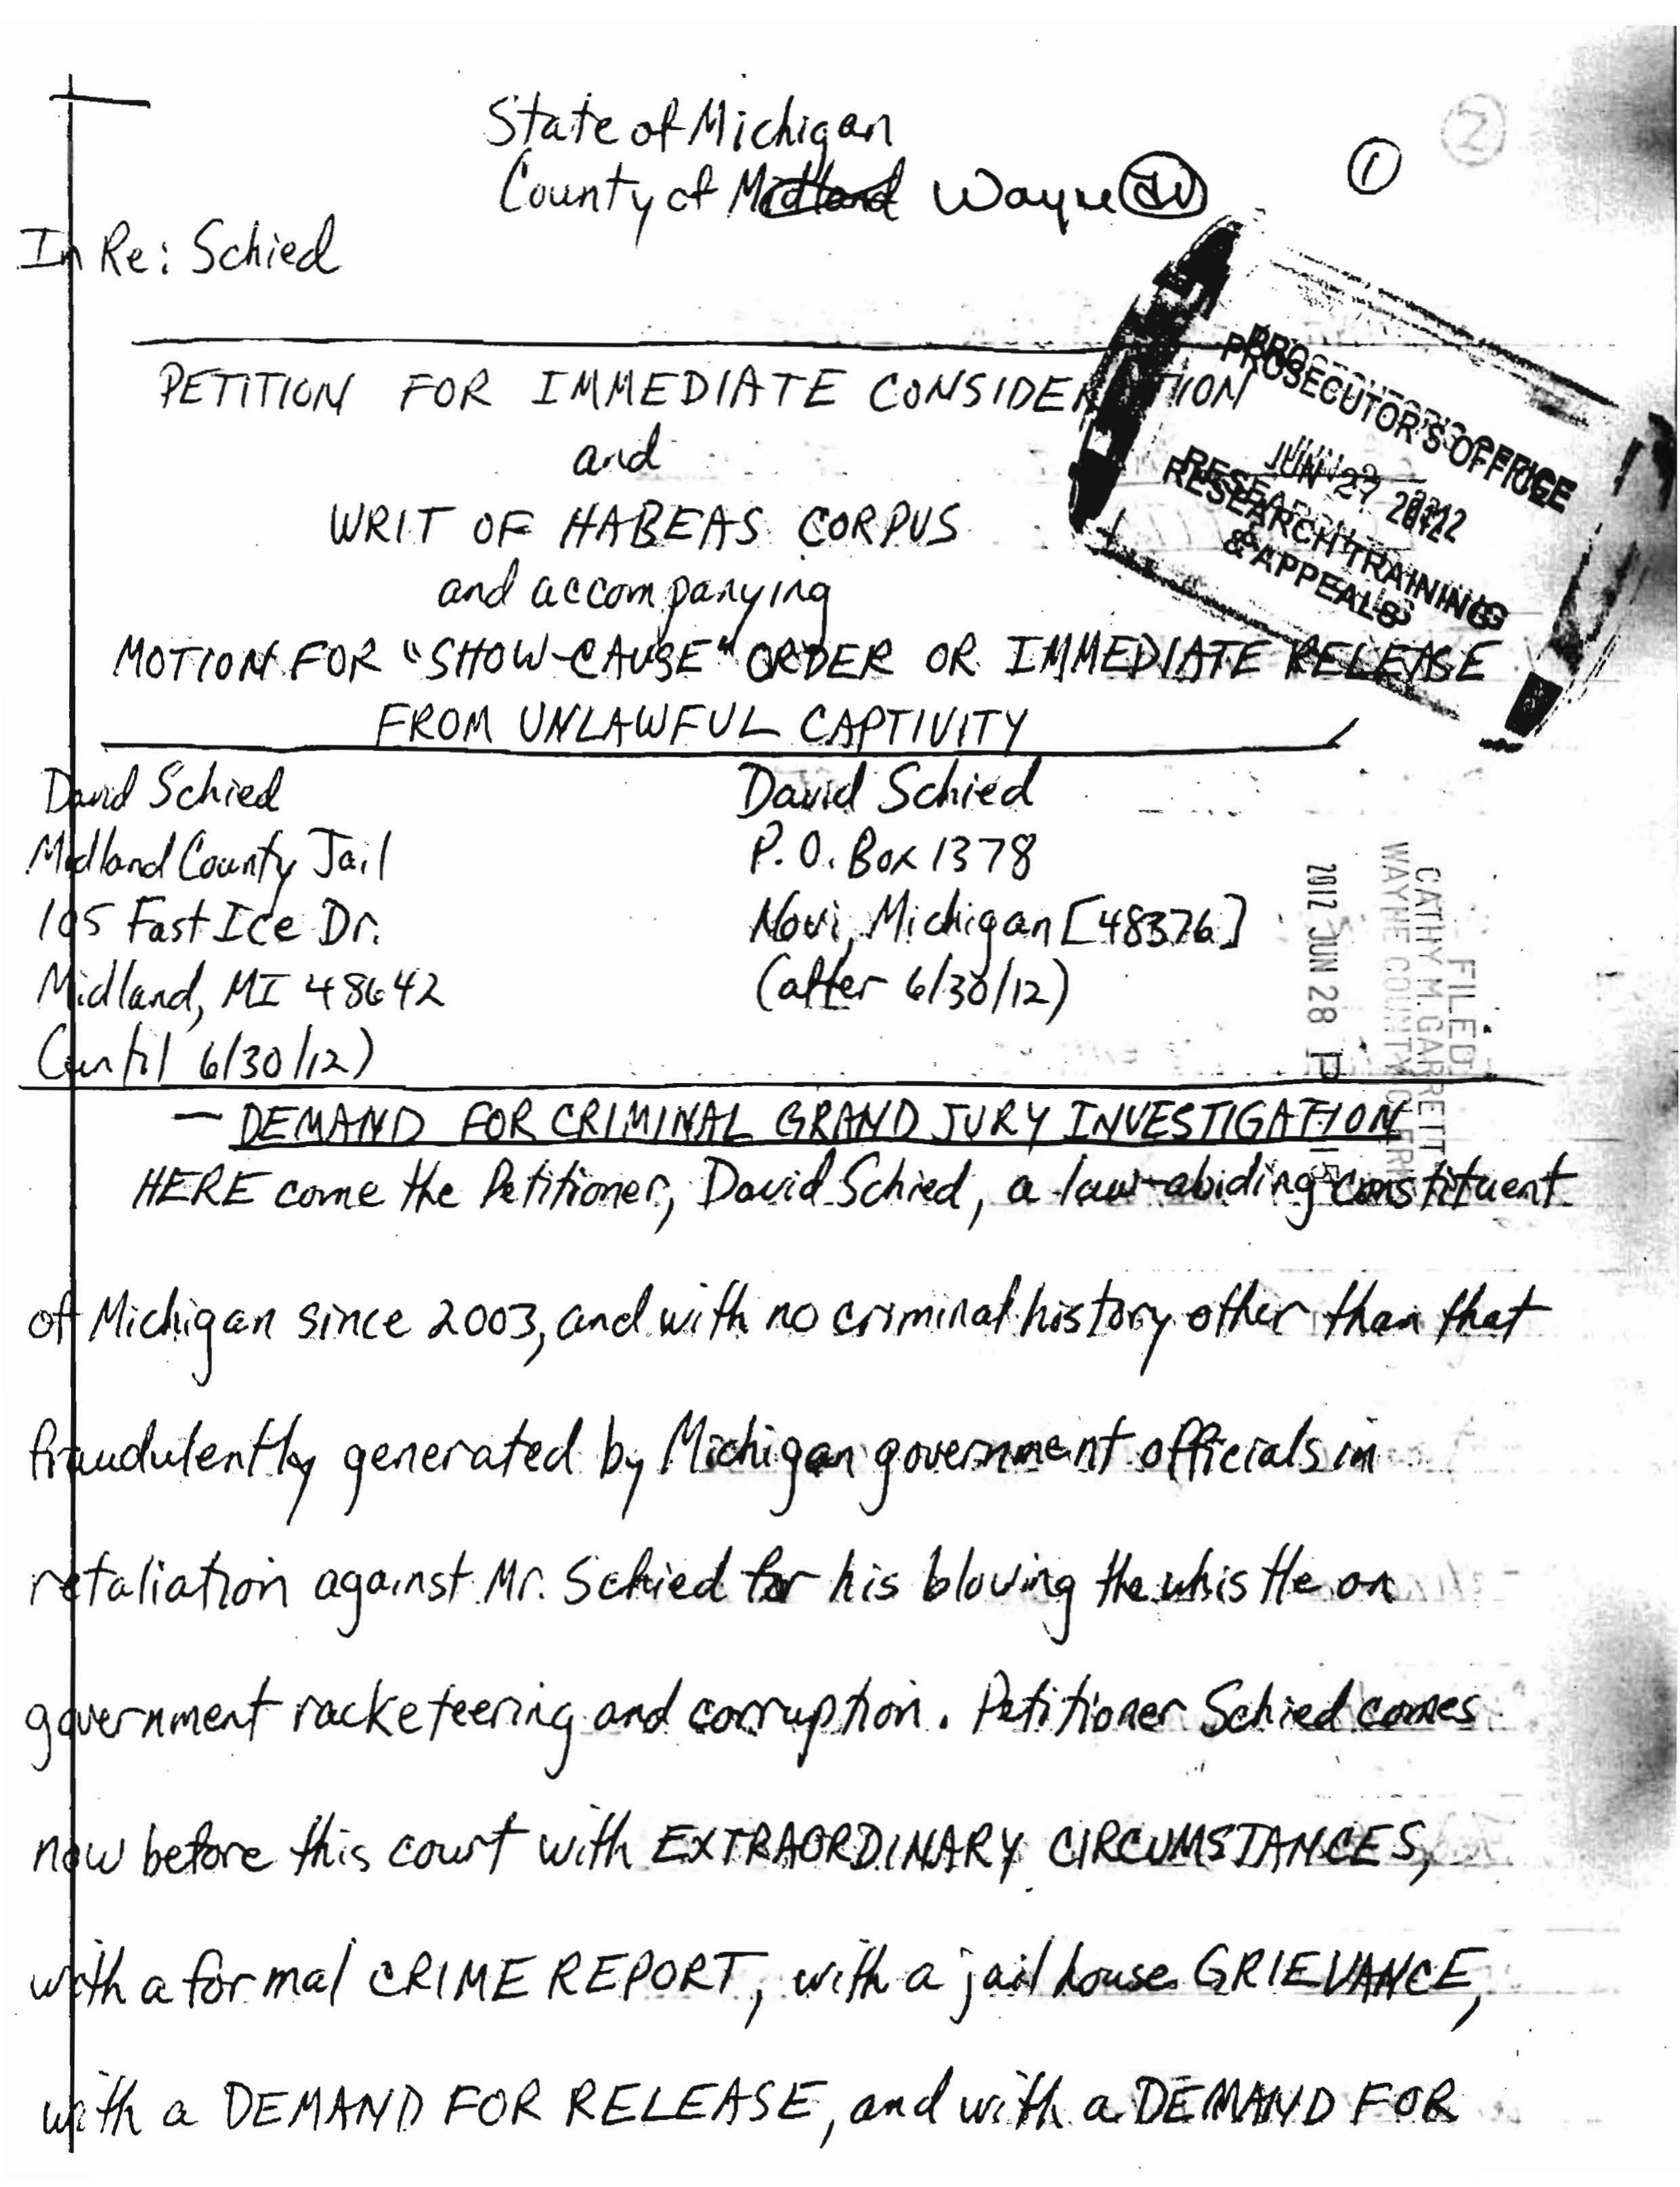 State of Michigan
County of Midland Wayne
1
2
In Re: Schied
PETITION FOR IMMEDIATE CONSIDERATION
and
WRIT OF HABEAS CORPUS
and accompanying
MOTION FOR "SHOW-CAUSE" ORDER OR IMMEDIATE RELEASE
FROM UNLAWFUL CAPTIVITY
PROSECUTOR'S OFFICE
JUN 27 2012
RESEARCH TRAINING
& APPEALS
David Schied
Midland County Jail
105 Fast Ice Dr.
Midland, MI 48642
(until 6/30/12)
David Schied
P.O. Box 1378
Novi, Michigan [48376]
(after 6/30/12)
FILED
CATHY M. GARRETT
WAYNE COUNTY CLERK
2012 JUN 28 P
— DEMAND FOR CRIMINAL GRAND JURY INVESTIGATION
HERE come the Petitioner, David Schied, a law-abiding constituent
of Michigan since 2003, and with no criminal history other than that
fraudulently generated by Michigan government officials in
retaliation against Mr. Schied for his blowing the whistle on
government racketeering and corruption. Petitioner Schied comes
now before this court with EXTRAORDINARY CIRCUMSTANCES,
with a formal CRIME REPORT, with a jailhouse GRIEVANCE,
with a DEMAND FOR RELEASE, and with a DEMAND FOR